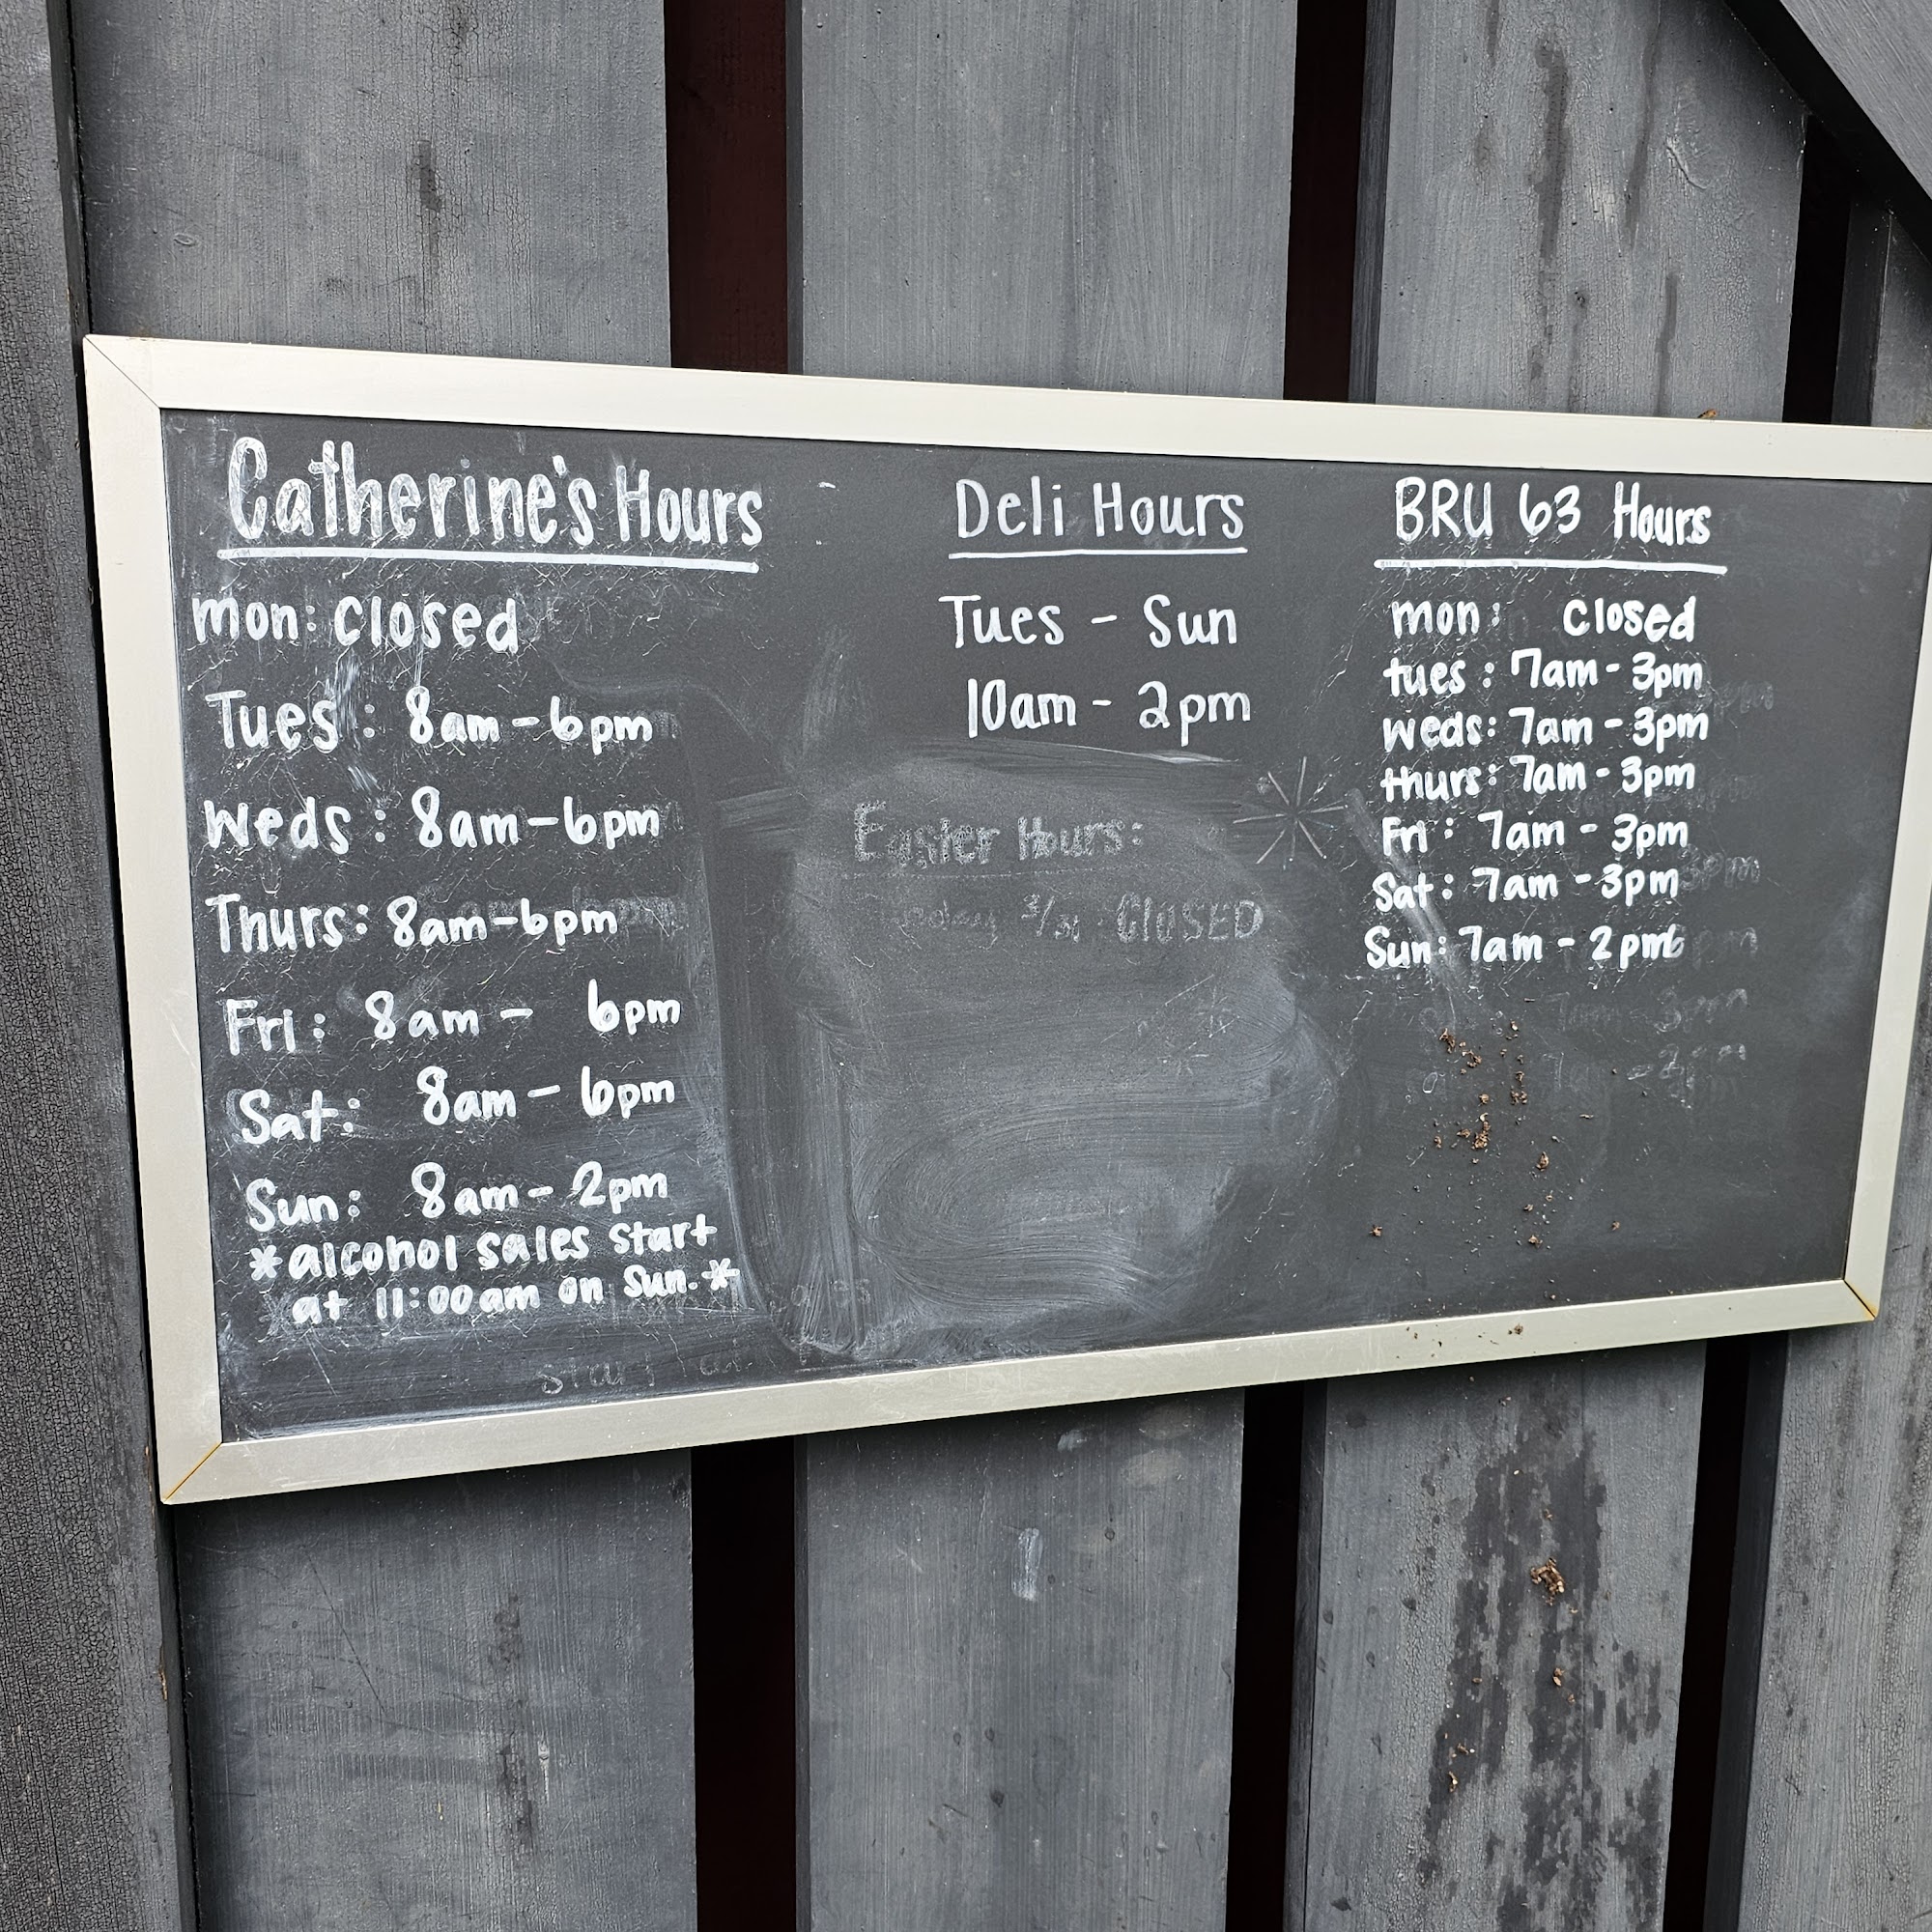 Catherine's Hours
mon: closed
Tues: 8am-6pm
Weds: 8am-6pm
Thurs: 8am-6pm
Fri: 8am - 6pm
Sat: 8am - 6pm
Sun: 8am - 2pm
*alcohol sales start
at 11:00am on Sun.*
start
Deli Hours
Tues - Sun
10am - 2pm
Easter Hours:
3/31 CLOSED
BRU 63 Hours
mon: closed
tues: 7am - 3pm
weds: 7am - 3pm
thurs: 7am - 3pm
Fri: 7am - 3pm
Sat: 7am - 3pm
Sun: 7am - 2pm